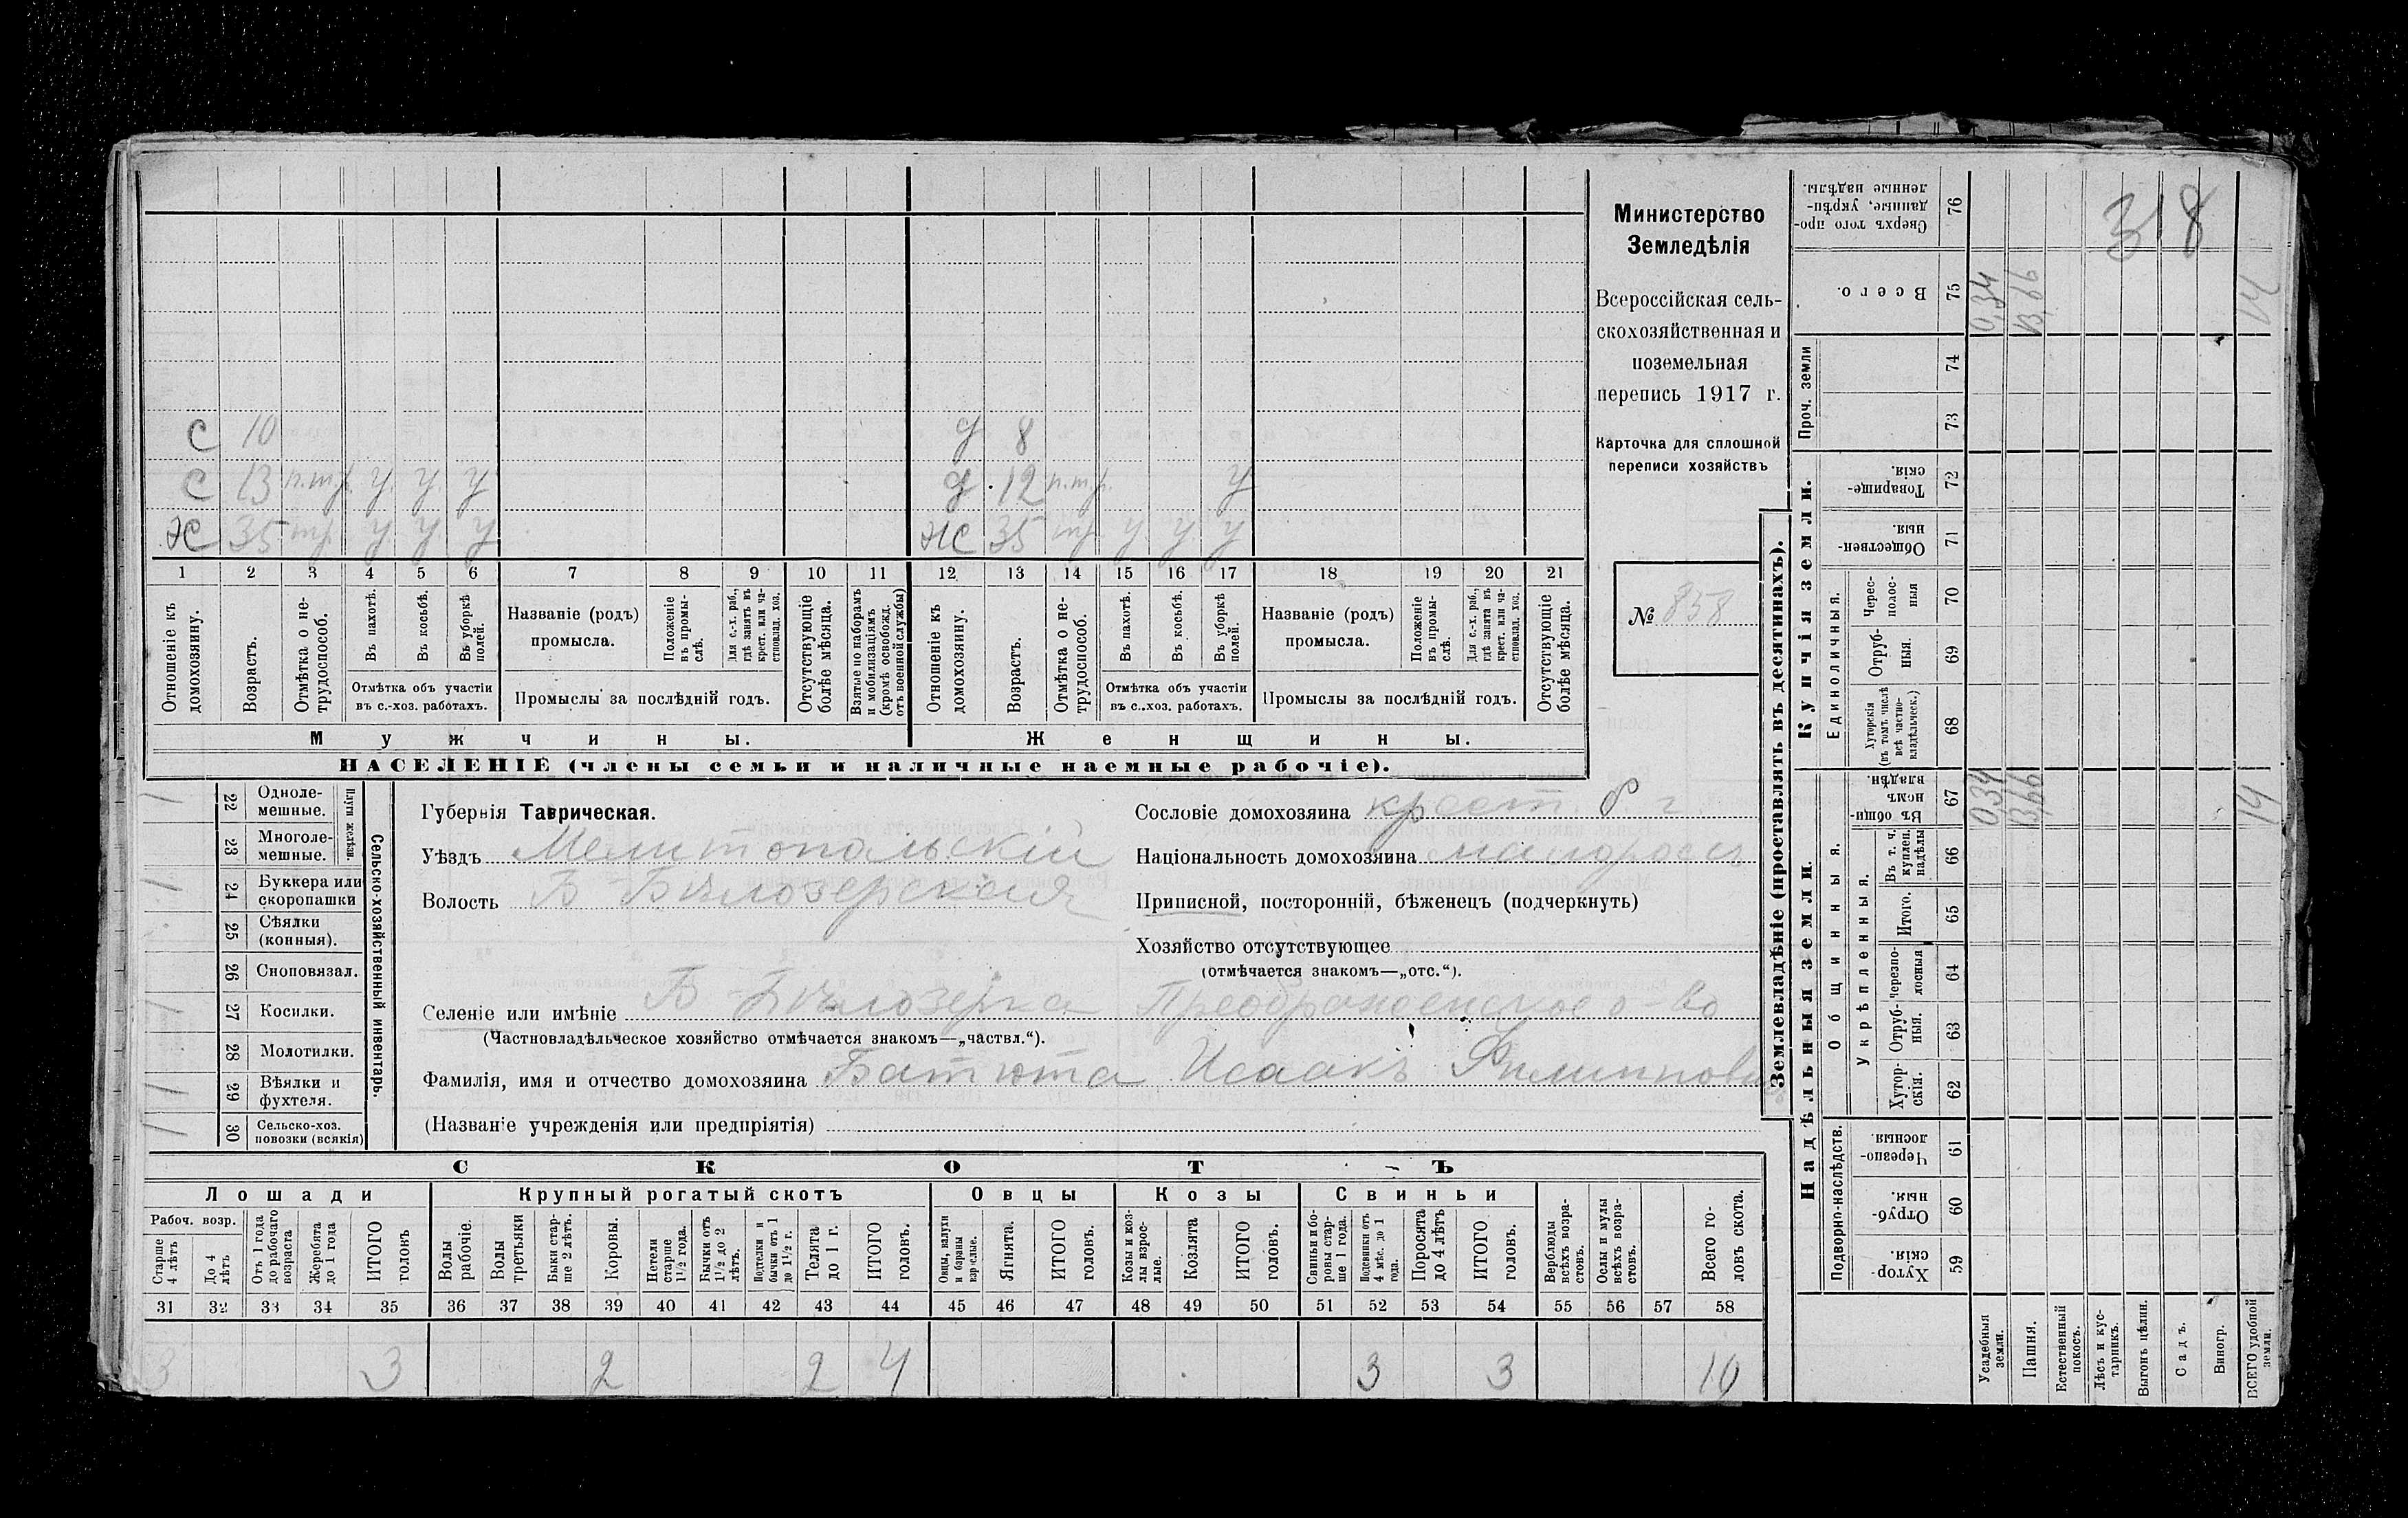 318
Министерство
Земледѣлія
Всероссійская сель-
скохозяйственная и
поземельная
перепись 1917 г.
Карточка для сплошной
переписи хозяйствъ
№ 858
С 10
С 13 п.т.р. у у у
Х 35 тр у у у
д 8
д 12 п.т.р. у
Ж 35 тр у у у
1 2 3 4 5 6 7 8 9 10 11 12 13 14 15 16 17 18 19 20 21
Отношеніе къ домохозяину.
Возрастъ.
Отмѣтка о не-трудоспособ.
Въ пахотѣ.
Въ косьбѣ.
Въ уборкѣ полей.
Отмѣтка объ участіи
въ с.-хоз. работахъ.
Названіе (родъ)
промысла.
Положеніе въ промы-слѣ.
Для с.-х. раб., гдѣ занятъ въ крест. или ча-стновлад. хоз.
Промыслы за послѣдній годъ.
Отсутствующіе болѣе мѣсяца.
Взятые по наборамъ и мобилизаціямъ (кромѣ освобожд. отъ военной службы)
Отношеніе къ домохозяину.
Возрастъ.
Отмѣтка о не-трудоспособ.
Въ пахотѣ.
Въ косьбѣ.
Въ уборкѣ полей.
Отмѣтка объ участіи
въ с..хоз. работахъ.
Названіе (родъ)
промысла.
Положеніе въ промы-слѣ.
Для с.-х. раб., гдѣ занята въ крест. или ча-стновлад. хоз.
Промыслы за послѣдній годъ.
Отсутствующіе болѣе мѣсяца.
Мужчины.
Женщины.
НАСЕЛЕНІЕ (члены семьи и наличные наемные рабочіе).
Сельско-хозяйственный инвентарь.
Плуги желѣзн.
22 Одноле-мешные. 1
23 Многоле-мешные.
24 Буккера или скоропашки 1
25 Сѣялки (конныя).
26 Сноповязал.
27 Косилки. 1
28 Молотилки.
29 Вѣялки и фухтеля.
30 Сельско-хоз. повозки (всякія)
Губернія Таврическая.
Уѣздъ Мелитопольскій
Волость Б-Бѣлозерская
Селеніе или имѣніе Б-Бѣлозерка Преображенское о-во
(Частновладѣльческое хозяйство отмѣчается знакомъ—„частвл.“).
Фамилія, имя и отчество домохозяина Батюта Исаакъ Филиппов
(Названіе учрежденія или предпріятія)
Сословіе домохозяина крест. б г.
Національность домохозяина малоросъ
Приписной, посторонній, бѣженецъ (подчеркнуть)
Хозяйство отсутствующее
(отмѣчается знакомъ—„отс.“).
СКОТЪ
Лошади
Крупный рогатый скотъ
Овцы
Козы
Свиньи
Рабоч. возр.
Старше 4 лѣтъ
До 4 лѣтъ
Отъ 1 года до рабочаго возраста
Жеребята до 1 года
ИТОГО головъ
Волы рабочіе.
Волы третьяки
Быки стар-ше 2 лѣтъ.
Коровы.
Нетели старше 1 1/2 года.
Бычки отъ 1 1/2 до 2 лѣтъ.
Подтелки и бычки отъ 1 до 1 1/2 г.
Телята до 1 г.
ИТОГО головъ.
Овцы, валухи и бараны взрослые.
Ягнята.
ИТОГО головъ.
Козы и коз-лы взрос-лые.
Козлята
ИТОГО головъ.
Свиньи и бо-ровы стар-ше 1 года.
Подсвинки отъ 4 мѣс. до 1 года.
Поросята до 4 лѣтъ
ИТОГО головъ.
Верблюды всѣхъ возра-стовъ.
Ослы и мулы всѣхъ возра-стовъ.
Всего го-ловъ скота.
31 32 33 34 35 36 37 38 39 40 41 42 43 44 45 46 47 48 49 50 51 52 53 54 55 56 57 58
3 3 2 2 4 3 3 10
Землевладѣніе (проставлять въ десятинахъ).
Надѣльныя земли.
Купчія земли.
Проч. земли
Подворно-наслѣдств.
Общинныя.
Укрѣпленныя.
Единоличныя.
Хутор-скія. 59
Отруб-ныя. 60
Черезпо-лосныя 61
Хутор-скія. 62
Отруб-ныя. 63
Черезпо-лосныя 64
Итого. 65
Въ т. ч. куплен. надѣлы 66
Въ общи-номъ владѣн. 67 0,34 13,66 14
Хуторскія (въ томъ числѣ всѣ частно-владѣльческ.) 68
Отруб-ныя. 69
Черес-полос-ныя 70
Обществен-ныя. 71
Товарище-скія. 72
73
74
Всего. 75 0,34 13,66 14
Сверхъ того про-данные, укрѣп-ленные надѣлы. 76
Усадебныя земли.
Пашня.
Естественный покосъ.
Лѣсъ и кус-тарникъ.
Выгонъ цѣлин.
Садъ.
Виногр.
ВСЕГО удобной земли.